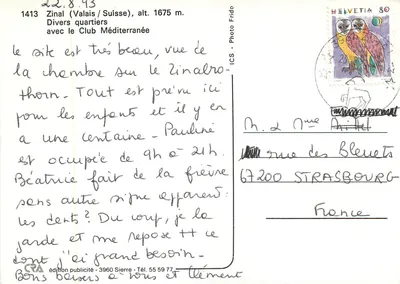 22.8.93
1413 Zinal (Valais / Suisse), alt. 1675 m.
Divers quartiers
avec le Club Méditerranée
le site est très beau, vue de
la chambre sur le Zinalro-
thorn. Tout est prévu ici
pour les enfants et il y en
a une centaine - Pauline
est occupée de 9h à 21h.
Béatrice fait de la fièvre
sans autre signe apparent:
les dents? Du coup, je la
garde et me repose tt ce
dont j'ai grand besoin -
Bons baisers à vous et Clément
édition publicité - 3960 Sierre - Tél. 55 59 77
ICS - Photo Frido
HELVETIA 80
M. & Mme
rue des Bleuets
67200 STRASBOURG
France